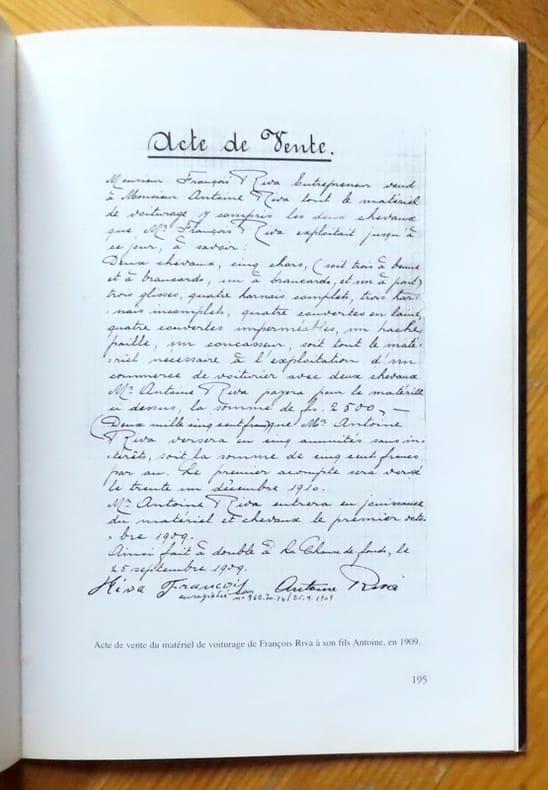 Acte de Vente.
Monsieur François Riva Entrepreneur vend
à Monsieur Antoine Riva tout le matériel
de voiturage y compris les deux chevaux
que Mr. François Riva exploitait jusqu'à
ce jour, à savoir :
Deux chevaux, cinq chars, (soit trois à
et à brancards, un à brancards, et un à pont)
trois glisses, quatre harnais complets, trois har-
nais incomplets, quatre couvertes en laine,
quatre couvertes imperméables, un hache
paille, un concasseur, soit tout le maté-
riel nécessaire à l'exploitation d'un
commerce de voiturier avec deux chevaux
Mr. Antoine Riva payera pour le matériel
ci dessus, la somme de fr. 2500,-
(Deux mille cinq cent francs) que Mr. Antoine
Riva versera en cinq annuités sans in-
térêts, soit la somme de cinq cent francs
par an. Le premier acompte sera versé
le trente un décembre 1910.
Mr. Antoine Riva entrera en jouissance
du matériel et chevaux le premier octo-
bre 1909.
Ainsi fait à double à La Chaux de fonds, le
25 septembre 1909.
Riva François Antoine Riva
enregistré 25.9.1909
Acte de vente du matériel de voiturage de François Riva à son fils Antoine, en 1909.
195